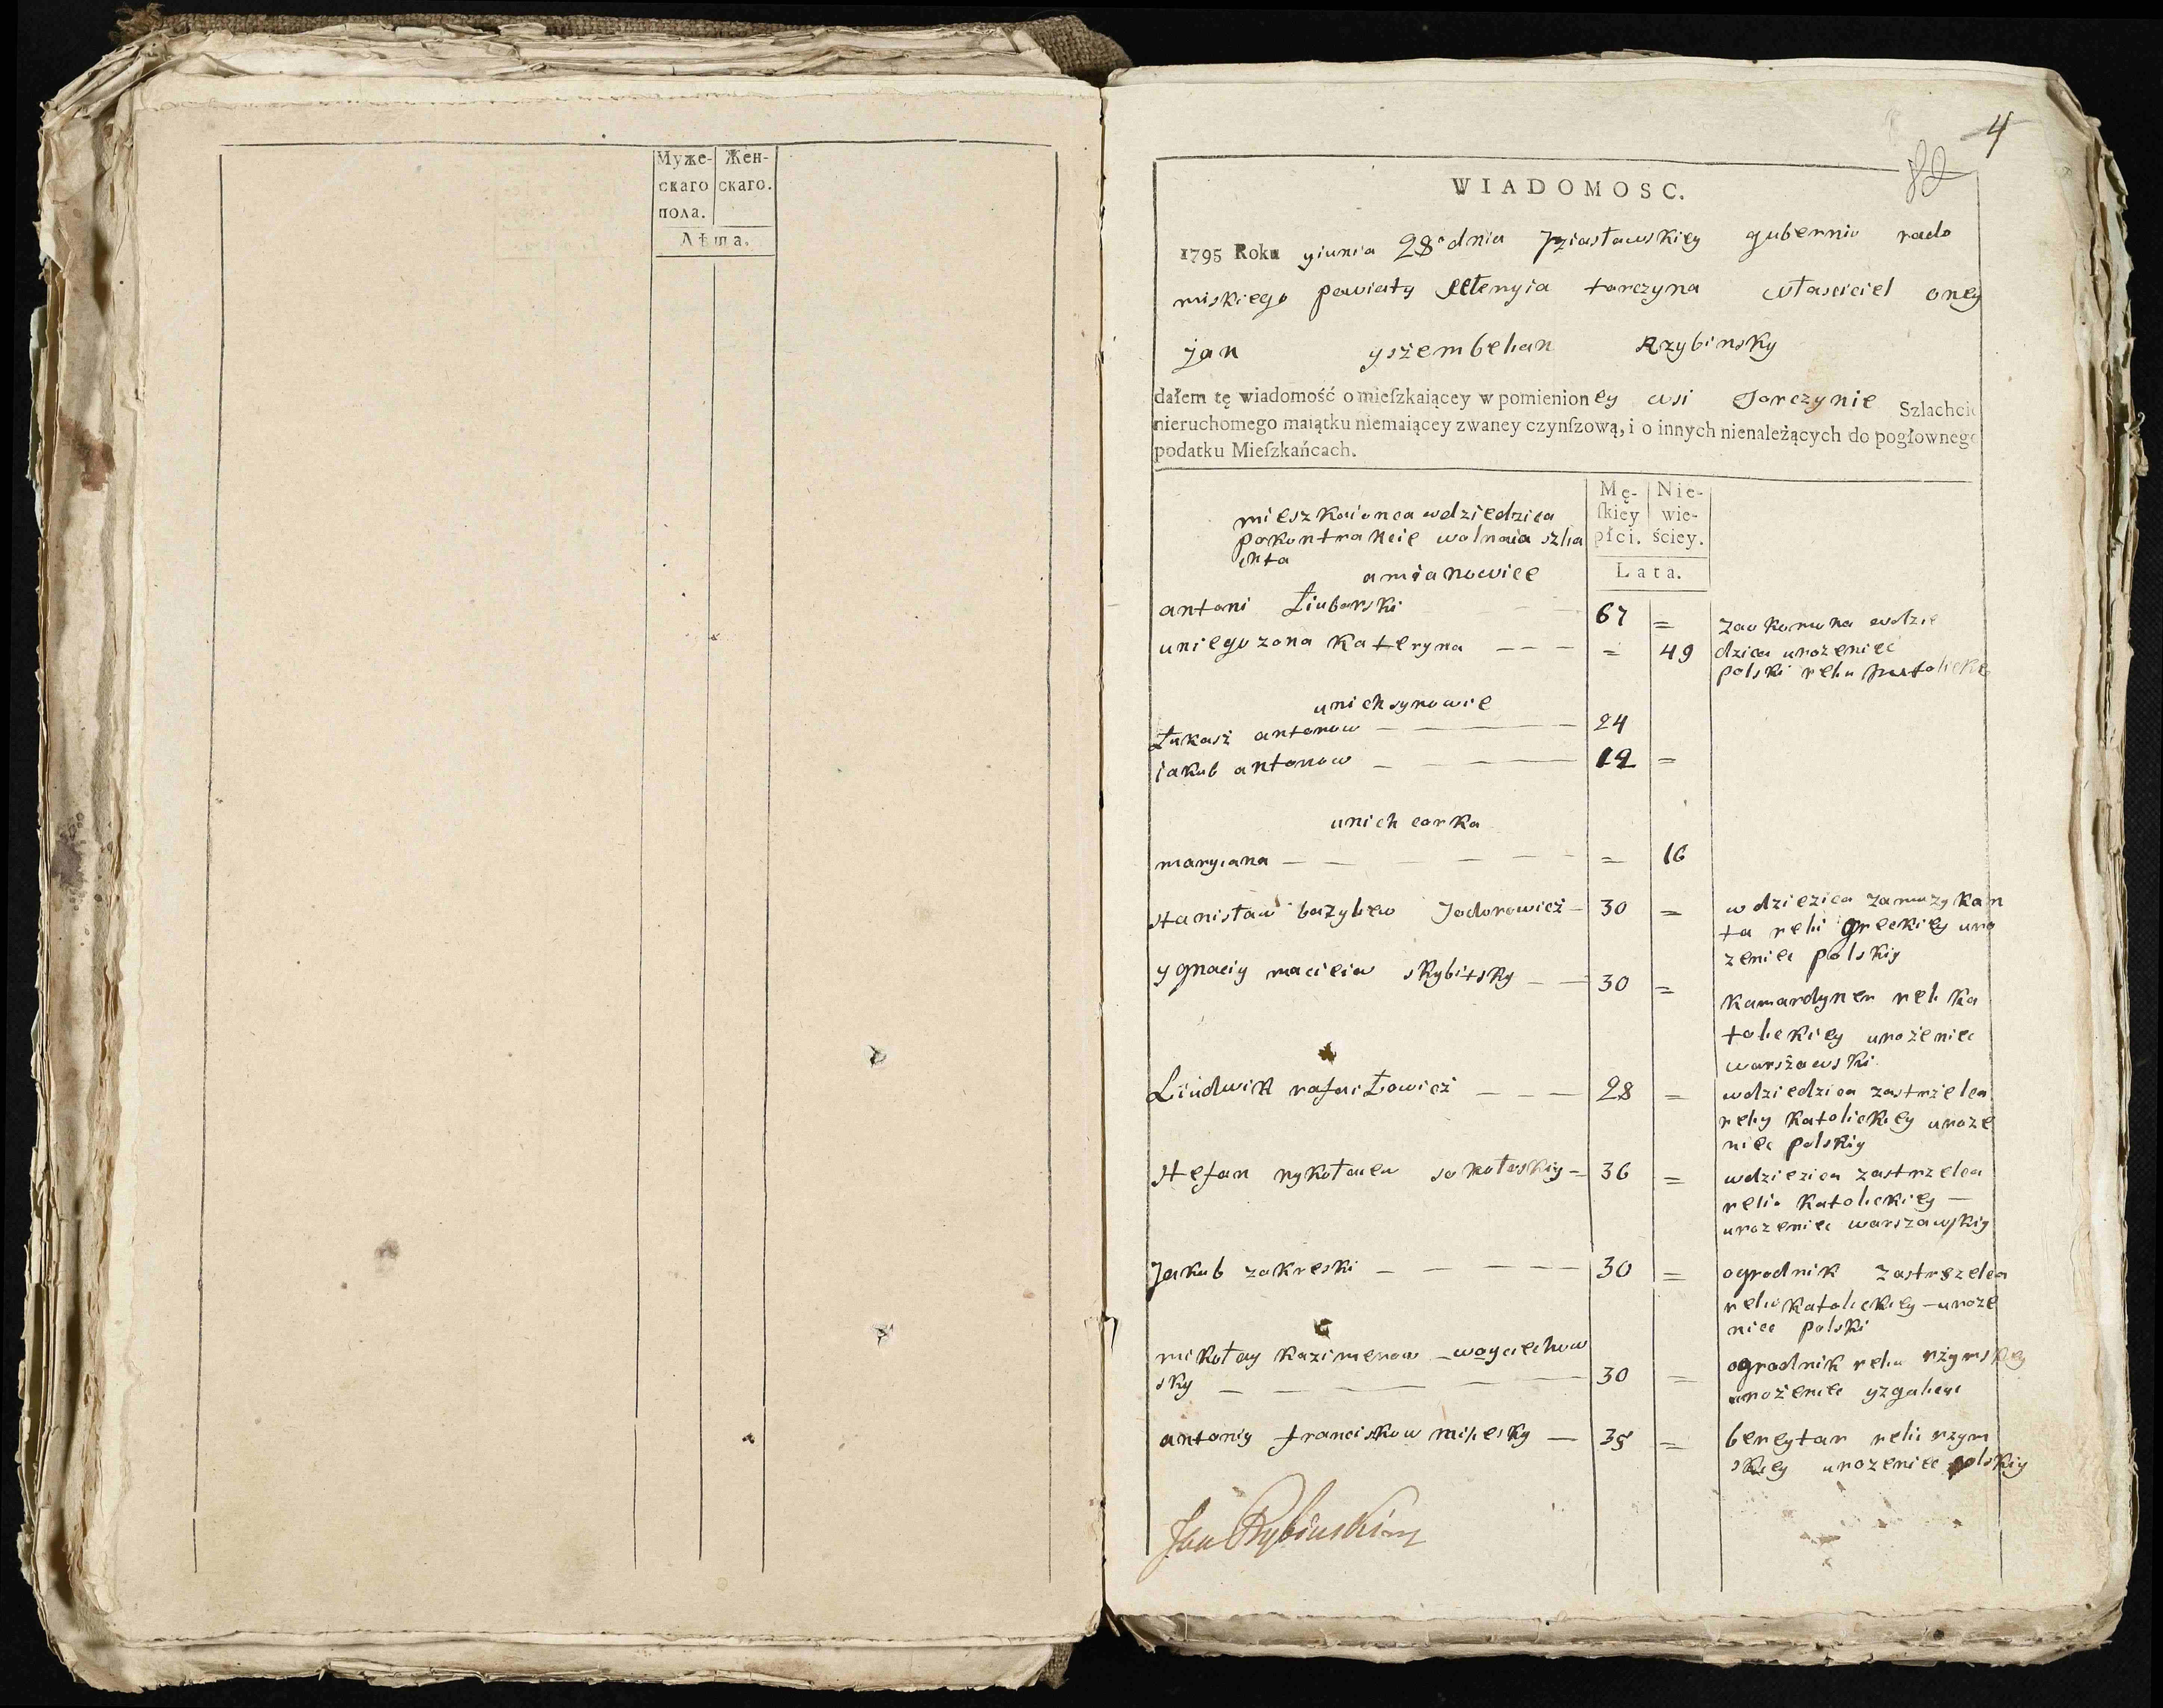 Муже-
скаго
пола.
Жен-
скаго.
Лѣта.
4
82
WIADOMOSC.
1795 Roku yiunia 28 dnia Jziasławskiey gubernio rado
miskiego powiaty torczyna własciciel oney
jan yszembehan Rzybinsky
dałem tę wiadomość o mieſzkaiącey w pomienioney wsi Torczynie Szlachcie
nieruchomego maiątku niemaiącey zwaney czynſzową, i o innych nienależących do pogłownego
podatku Mieſzkańcach.
Mę-
ſkiey
płci.
Nie-
wie-
ściey.
Lata.
mieszkaionca wdziedzica
pokontrakcie wolnaia szla
chta
amianowice
antoni Liubarski 67 =
uniego zona Kateryna = 49
zaekonoma wdzie
dzica urozeniec
polski
unich synowie
Łukasż antonow 24
iakub antonow 12 =
unich corka
maryiana = 16
stanisław bazylew Jodorowicż 30 =
wdziezica zamuzykan
ta reli greckiey uro
zeniec polskiy
ygnaciy macieiw skybitsky 30 =
kamardyner reli ka
tolickiey urożeniec
warsżawski
Liudwik rafaiłowicż 28 =
wdziedzica zastrżelca
reliy katolickiey uroze
niec polskiy
stefan nykołaiew sokołoskiy 36 =
wdziezica zastrzelca
relio katolickiey
urozeniec warszawskiy
Jakub zakreski 30 =
ogrodnik zastrszelca
relio katolickiey uroze
niec polski
mikołay kazimerow woyciechow
sky 30 =
ogrodnik reliu rżymskiey
urożeniec yzgalicyi
antoniy franciskow milesky 35 =
bereytar relii rzym
skiey urozeniec polskiy
Jan Rybinski